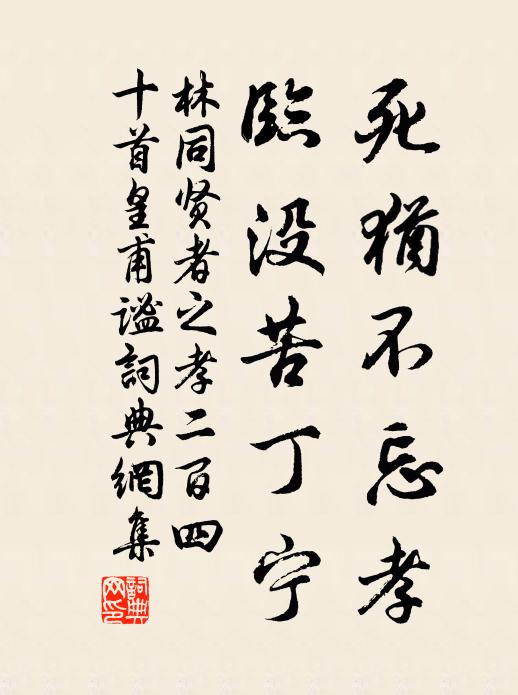 死犹不忘孝
临没苦丁宁
林同贤者之孝二百四
十首皇甫谧词典網集
詞典网印